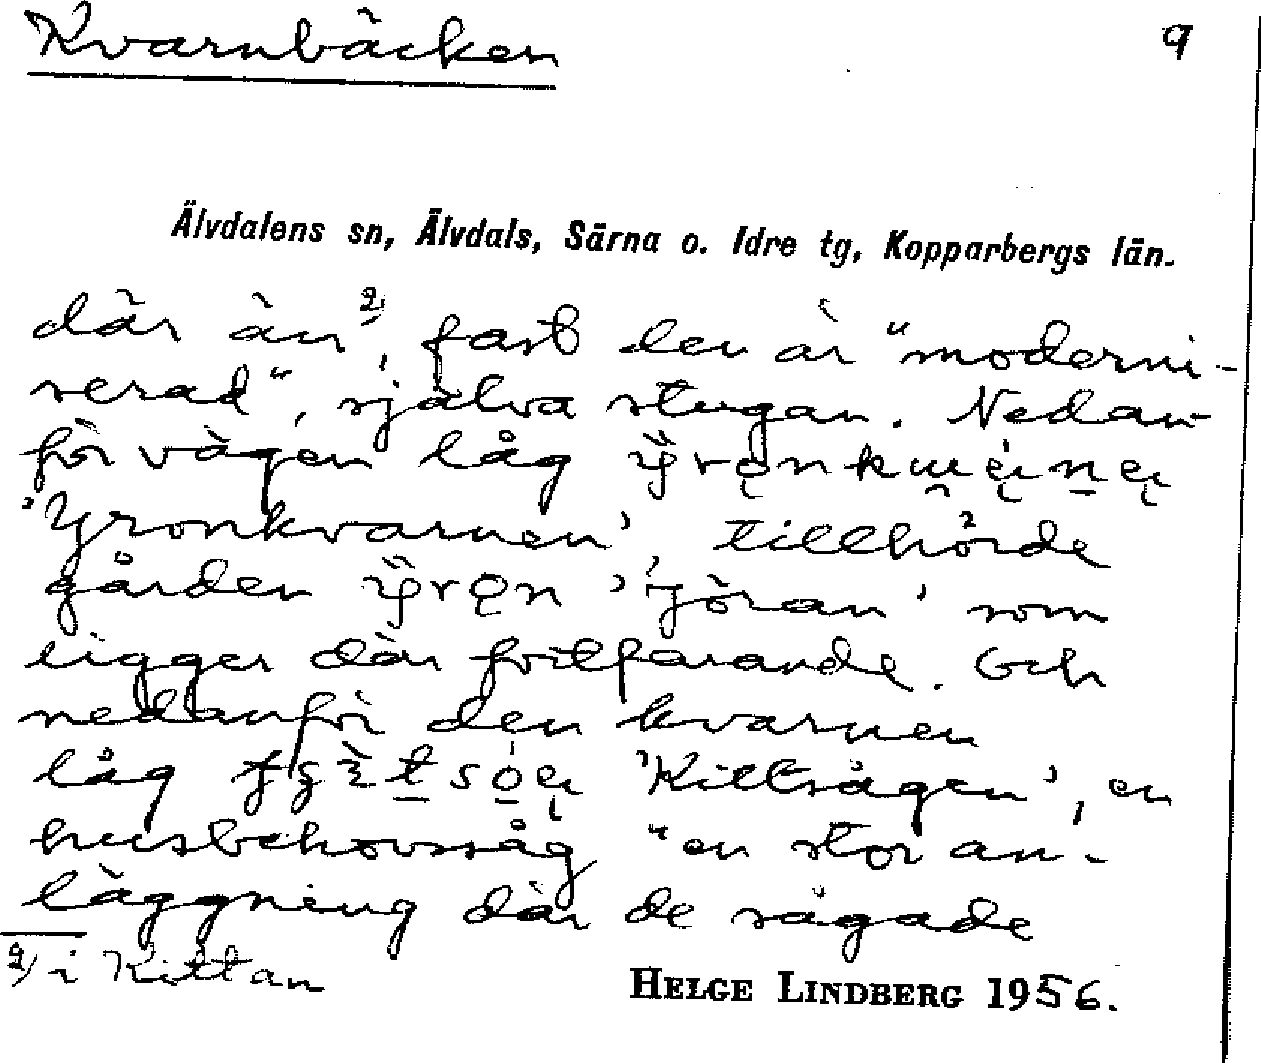 Kvarnbäcken 9
Älvdalens sn, Älvdals, Särna o. Idre tg, Kopparbergs län.
där än 2), fast den är "moderni-
serad", själva stugan. Nedan-
för vägen låg
'Yronkvarnen', tillhörde
gården 'Jöran' som
ligger där fortfarande. Och
nedanför den kvarnen
låg 'Kittsågen', en
husbehovssåg "en stor an-
läggning där de sågade
2) i Kittan
HELGE LINDBERG 1956.